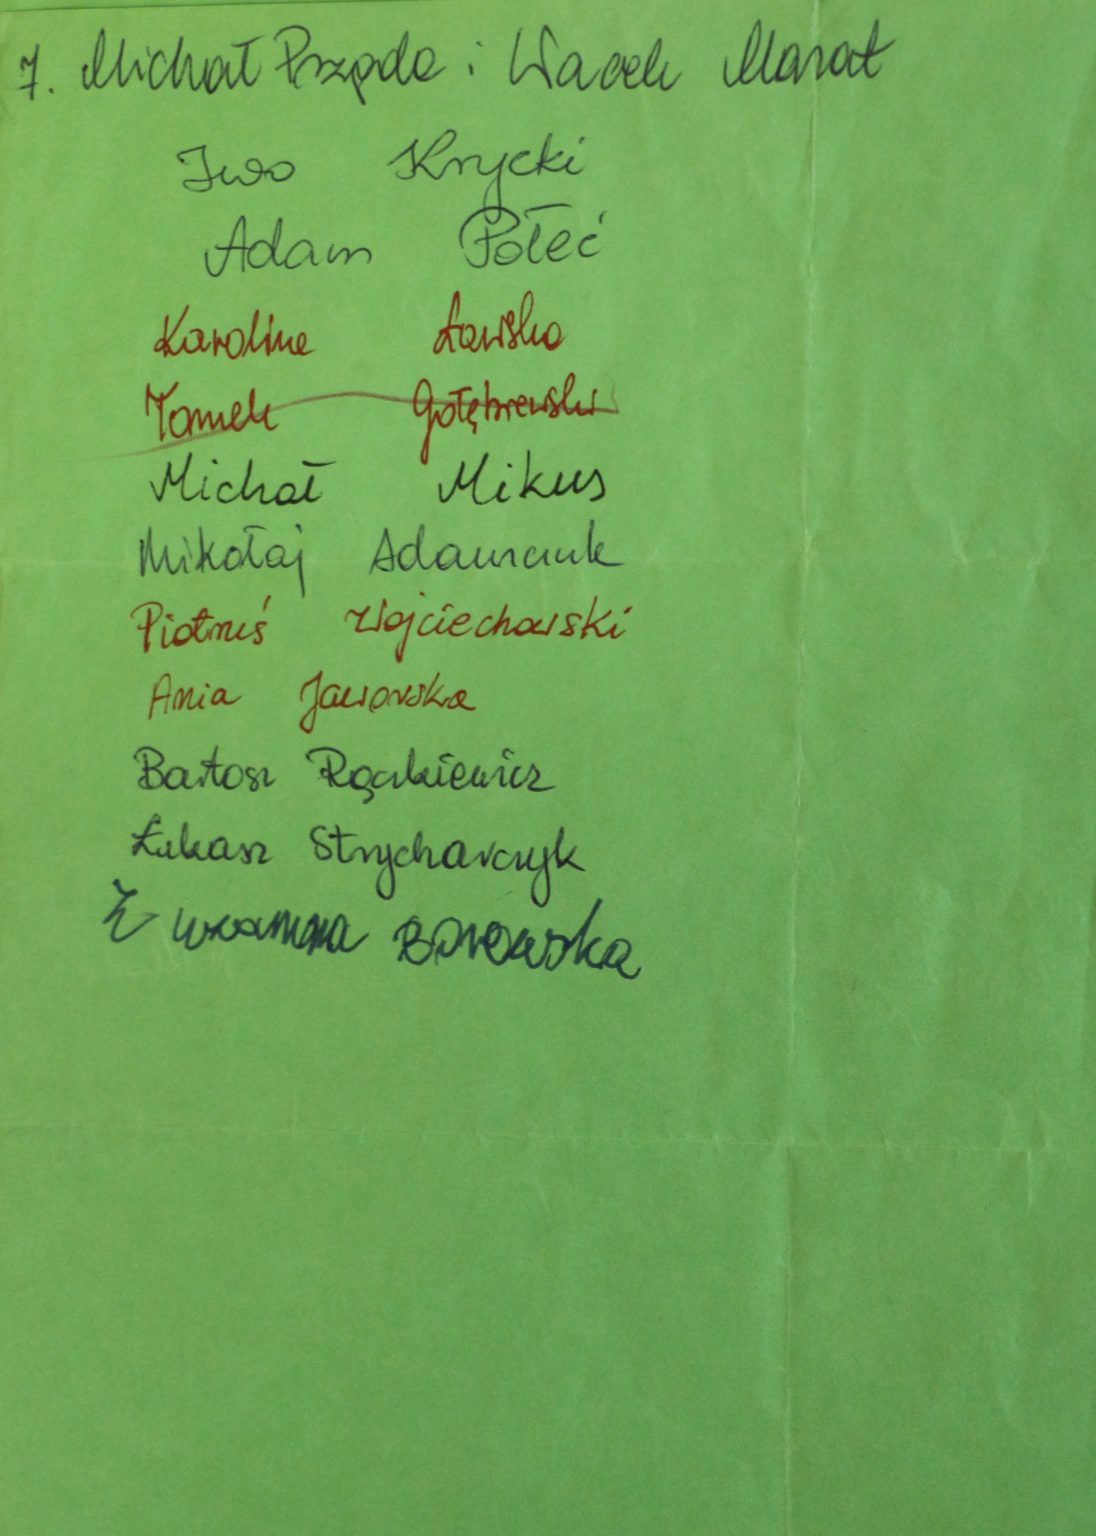 7. Michał Prządo i Wacek Marat
Iwo Krycki
Adam Połeć
Karolina Ławska
Tomek Gołębiewski
Michał Mikus
Mikołaj Adamczuk
Piotruś Wojciechowski
Ania Jaworska
Bartosz Rączkiewicz
Łukasz Strycharczyk
Borowska